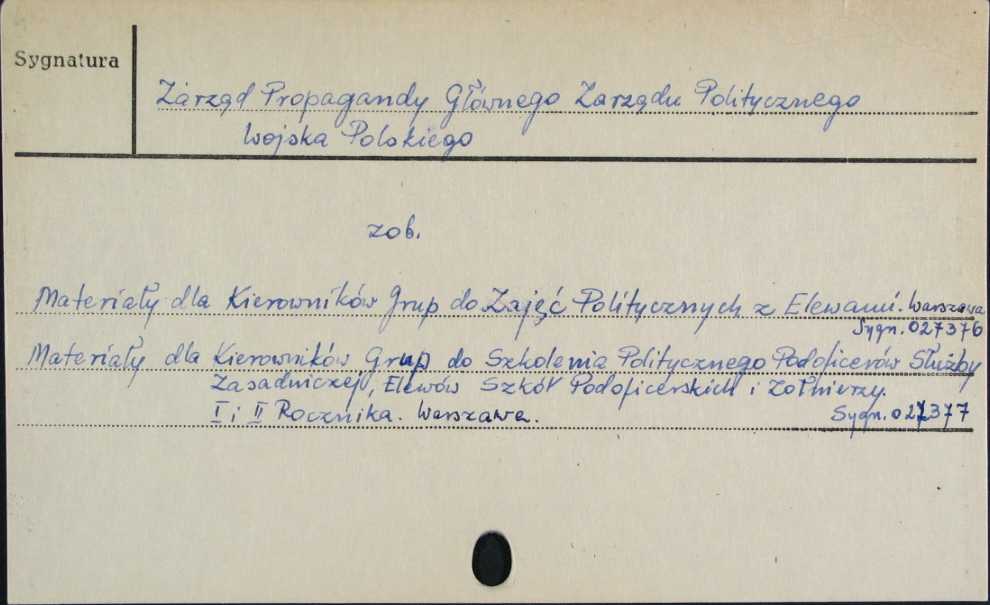 Sygnatura
Zarząd Propagandy Głównego Zarządu Politycznego
Wojska Polskiego
zob.
Materiały dla Kierowników Grup do Zajęć Politycznych z Elewami. Warszawa
Sygn. 027376
Materiały dla Kierowników Grup do Szkolenia Politycznego Podoficerów Służby
Zasadniczej, Elewów Szkół Podoficerskich i Żołnierzy.
I i II Rocznika. Warszawa.
Sygn. 027377